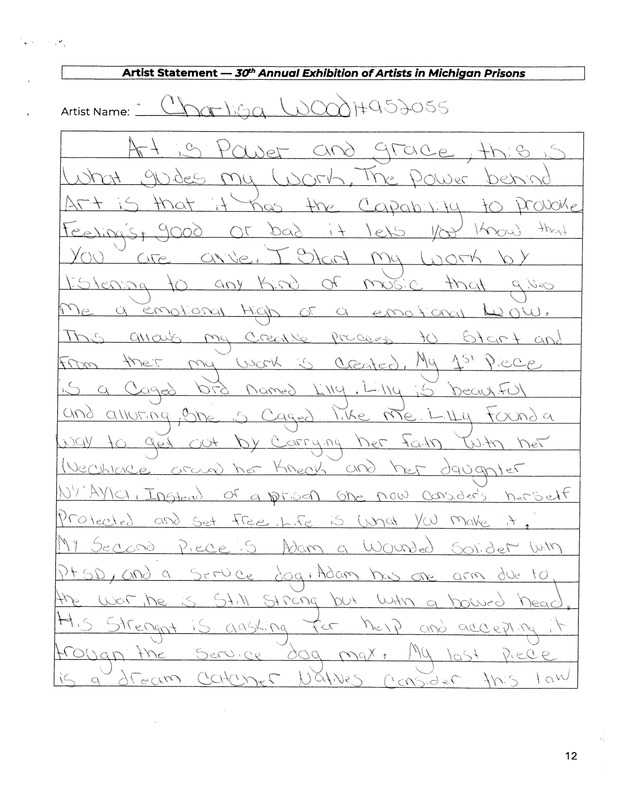 Artist Statement — 30th Annual Exhibition of Artists in Michigan Prisons
Artist Name: Charlisa Wood #952055
Art is Power and grace, this is
What guides my Work. The Power behind
Art is that it has the Capability to provoke
Feeling's, good or bad it lets you Know that
You are alive. I Start my work by
listening to any Kind of music that gives
me a emotional High or a emotional Low.
This allows my Creative process to Start and
From ther my work is Created. My 1st Piece
is a Caged bird named Lilly. Lilly is beautful
and alluring, She is Caged like me. Lilly Found a
way to get out by Carrying her faith With her
Necklace around her Kneck and her daughter
Ny'Ayla. Instead of a prison she now Considers herself
Protected and set free. Life is what you make it.
My Second Piece is Adam a Wounded Solider with
PtSD, and a Service dog. Adam has one arm due to
the war, he is Still Strong but with a bowed head.
His Strenght is aasking for help and accepting it
trough the Service dog max. My last piece
is a dream Catcher Natives Consider this law
12